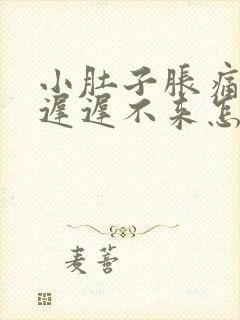 小肚子胀痛
遅遅不来怎
麦蕾